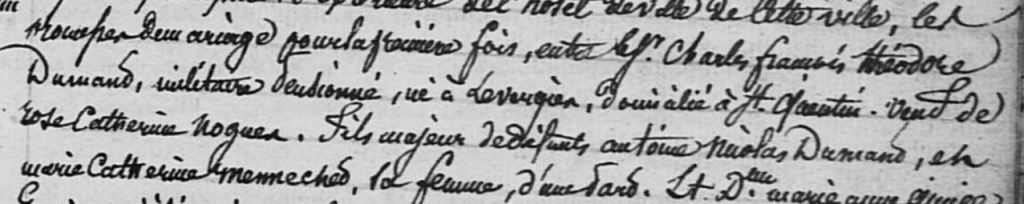 del hotel de ville de Cette ville, les
promesses de mariage pour la première fois, entre le Sr. Charles françois théodore
Dumand, militaire Pensionné, né à Levergies, domicilié à St. Quentin. veuf de
rose Catherine noguer. Fils majeur de défunts antoine Nicolas Dumand, et
marie Catherine mennechet, sa femme, d'une Part. Et Dlle. marie anne